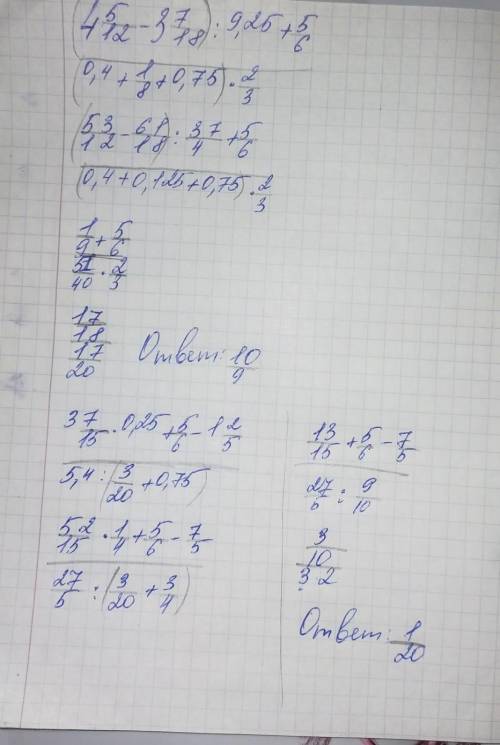 (4 5/12 - 3 7/18) : 9,25 + 5/6
(0,4 + 1/8 + 0,75) · 2/3
(53/12 - 61/18) : 37/4 + 5/6
(0,4 + 0,125 + 0,75) · 2/3
1/9 + 5/6
51/40 · 2/3
17/18
17/20
Ответ: 10/9
3 7/15 · 0,25 + 5/6 - 1 2/5
5,4 : (3/20 + 0,75)
52/15 · 1/4 + 5/6 - 7/5
27/5 : (3/20 + 3/4)
13/15 + 5/6 - 7/5
27/5 : 9/10
3/10
Ответ: 1/20